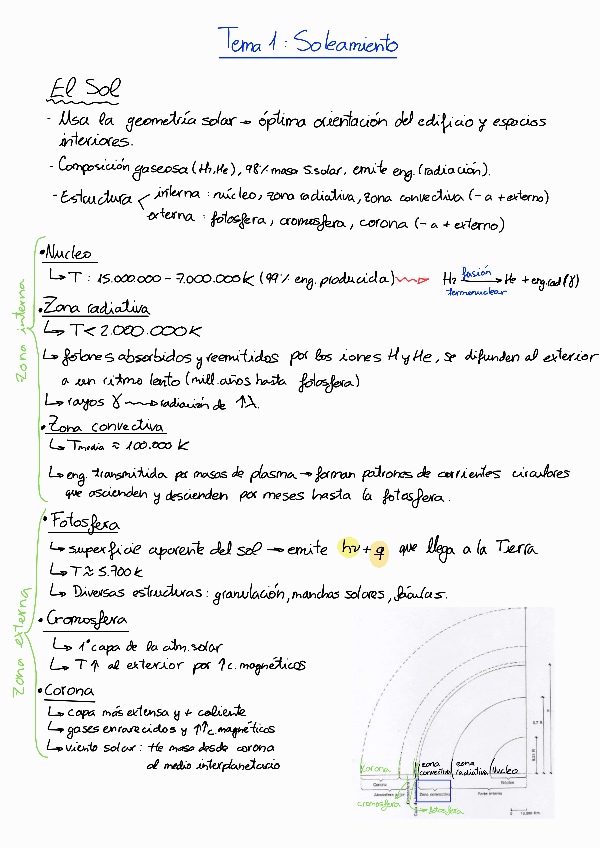 Tema 1: Soleamiento
El Sol
- Usa la geometría solar → óptima orientación del edificio y espacios
interiores.
- Composición gaseosa (H, He), 98% masa S.solar, emite eng. (radiación).
- Estructura < interna: núcleo, zona radiativa, zona convectiva (- a + externo)
externa: fotosfera, cromosfera, corona (- a + externo)
Zona interna
• Nucleo
↳ T: 15.000.000 - 7.000.000K (99% eng. producida) → H2 fusión termonuclear → He + eng.rad (γ)
• Zona radiativa
↳ T < 2.000.000K
↳ fotones absorbidos y reemitidos por los iones H y He, se difunden al exterior
a un ritmo lento (mill. años hasta fotosfera)
↳ rayos γ → radiación de ↑λ.
• Zona convectiva
↳ Tmedia ≈ 100.000 K
↳ eng. transmitida por masas de plasma → forman patrones de corrientes circulares
que ascienden y descienden por meses hasta la fotosfera.
Zona externa
• Fotosfera
↳ superficie aparente del sol → emite hν + q que llega a la Tierra
↳ T ≈ 5.700K
↳ Diversas estructuras: granulación, manchas solares, fáculas.
• Cromosfera
↳ 1ª capa de la atm. solar
↳ T ↑ al exterior por ↑c. magnéticos
• Corona
↳ capa más extensa y + caliente
↳ gases enrarecidos y ↑↑c. magnéticos
↳ viento solar: He masa desde corona
al medio interplanetario
corona
zona convectiva
zona radiativa
Nucleo
Corona
Núcleo
Zona convectiva
cromosfera
fotosfera